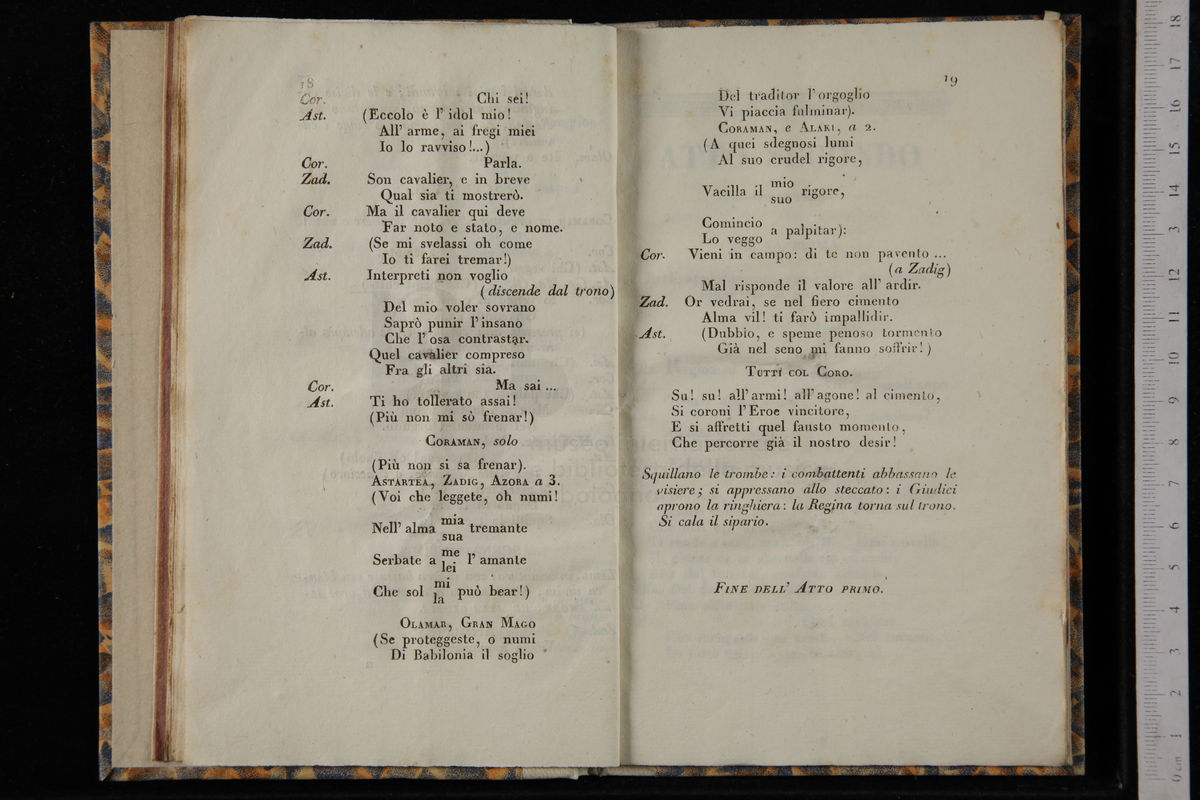 18
Cor. Chi sei!
Ast. (Eccolo è l' idol mio!
All' arme, ai fregi miei
Io lo ravviso!...)
Cor. Parla.
Zad. Son cavalier, e in breve
Qual sia ti mostrerò.
Cor. Ma il cavalier qui deve
Far noto e stato, e nome.
Zad. (Se mi svelassi oh come
Io ti farei tremar!)
Ast. Interpreti non voglio
(discende dal trono)
Del mio voler sovrano
Saprò punir l' insano
Che l' osa contrastar.
Quel cavalier compreso
Fra gli altri sia.
Cor. Ma sai ...
Ast. Ti ho tollerato assai!
(Più non mi sò frenar!)
CORAMAN, solo
(Più non si sa frenar).
ASTARTEA, ZADIG, AZORA a 3.
(Voi che leggete, oh numi!
Nell' alma mia tremante
sua
Serbate a me l' amante
lei
Che sol mi può bear!)
la
OLAMAR, GRAN MAGO
(Se proteggeste, o numi
Di Babilonia il soglio
19
Del traditor l' orgoglio
Vi piaccia fulminar).
CORAMAN, e ALAKI, a 2.
(A quei sdegnosi lumi
Al suo crudel rigore,
Vacilla il mio rigore,
suo
Comincio a palpitar):
Lo veggo
Cor. Vieni in campo: di te non pavento ...
(a Zadig)
Mal risponde il valore all' ardir.
Zad. Or vedrai, se nel fiero cimento
Alma vil! ti farò impallidir.
Ast. (Dubbio, e speme penoso tormento
Già nel seno mi fanno soffrir!)
TUTTI COL CORO.
Su! su! all' armi! all' agone! al cimento,
Si coroni l' Eroe vincitore,
E si affretti quel fausto momento,
Che percorre già il nostro desir!
Squillano le trombe: i combattenti abbassano le
visiere; si appressano allo steccato: i Giudici
aprono la ringhiera: la Regina torna sul trono.
Si cala il sipario.
FINE DELL' ATTO PRIMO.